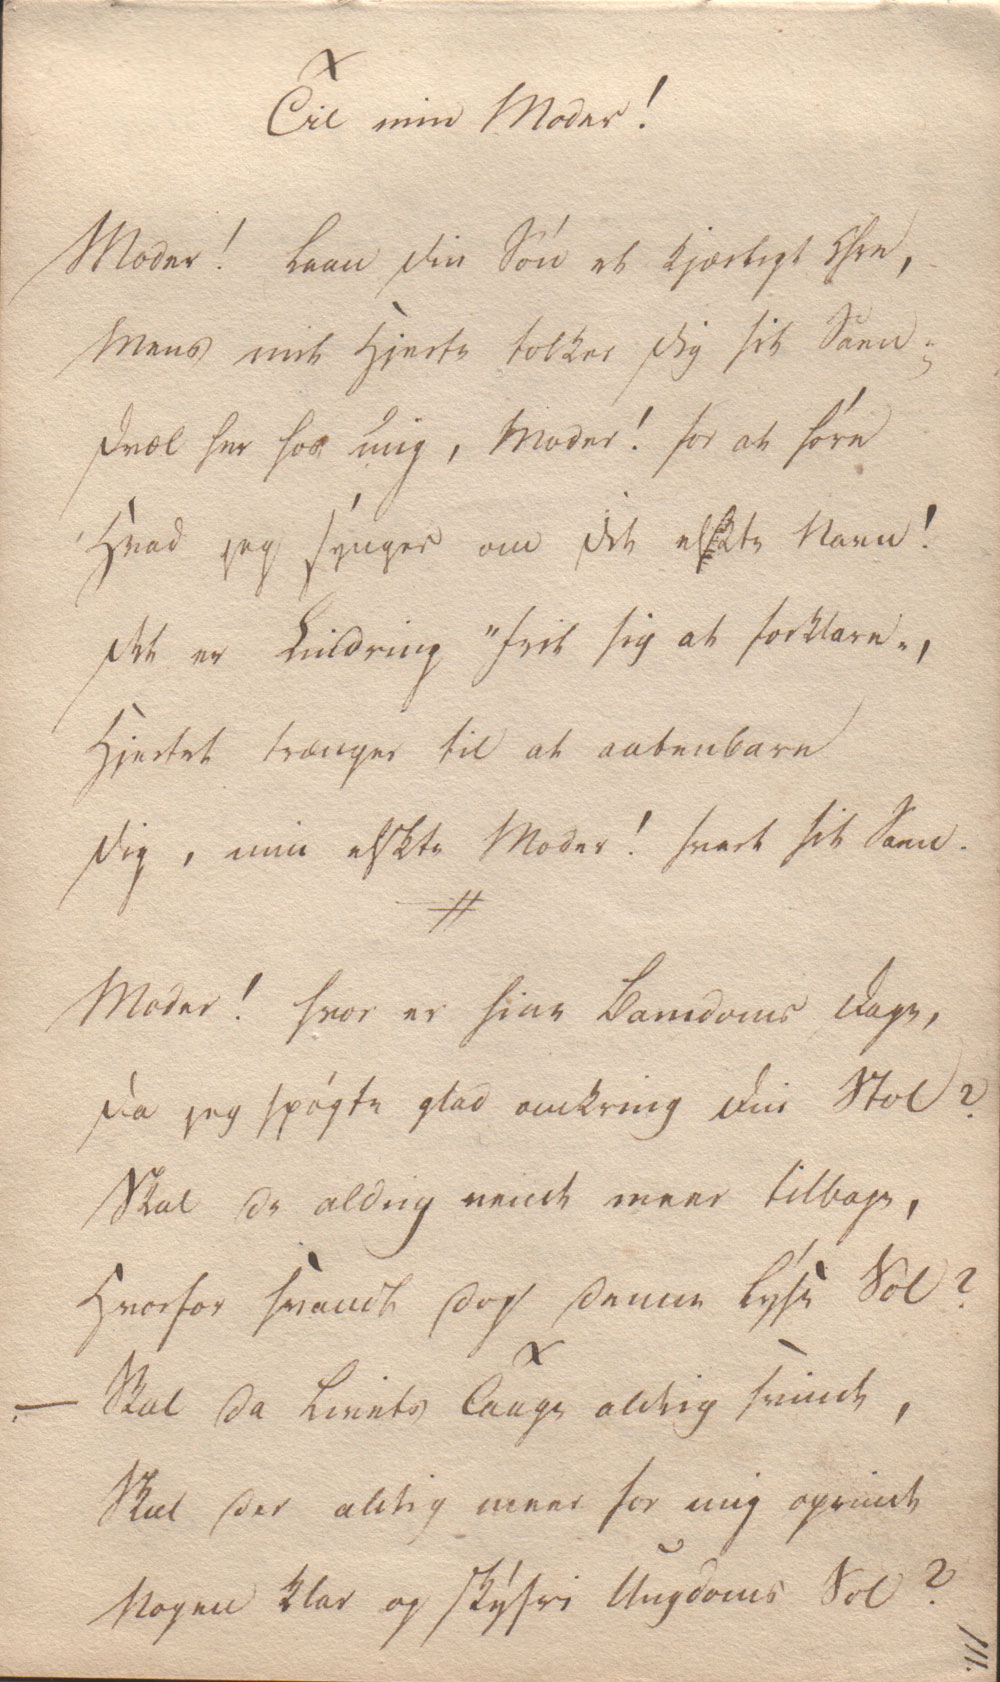 Til min Moder!
Moder! laan din Søn et kjærligt Øre,
Mens mit Hjerte tolker dig sit Savn;
Dvæl her hos mig, Moder! for at høre
Hvad jeg synger om det elskte Navn!
Det er Lindring "frit sig at forklare",
Hjertet trænger til at aabenbare
Dig, min elskte Moder! hvert sit Savn.
#
Moder! hvor er hine Barndoms Dage,
Da jeg spøgte glad omkring din Stol?
Skal de aldrig vende meer tilbage,
Hvorfor svandt dog denne lyse Sol?
— Skal da Livets Taage aldrig svinde,
Skal der aldrig meer for mig oprinde
Nogen klar og skyfri Ungdoms Sol?